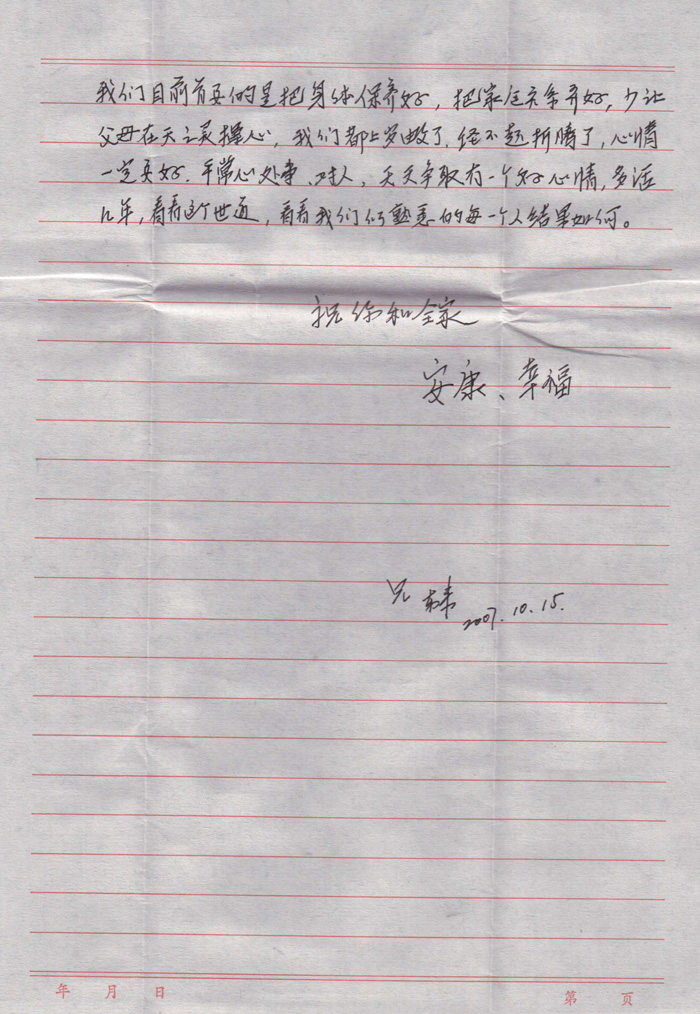 我们目前首要的是把身体保养好，把家庭关系弄好，少让
父母在天之灵操心，我们都上岁数了，经不起折腾了，心情
一定要好，平常心处事、对人，天天争取有一个好心情，多活
几年，看看这个世道，看看我们所熟悉的每一个人结果如何。
祝你和全家
安康、幸福
兄
2007.10.15.
年 月 日
第 页